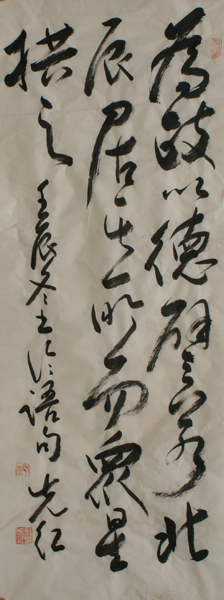 為政以德譬若北
辰居其所而眾星
拱之
壬辰冬 论语句 先红